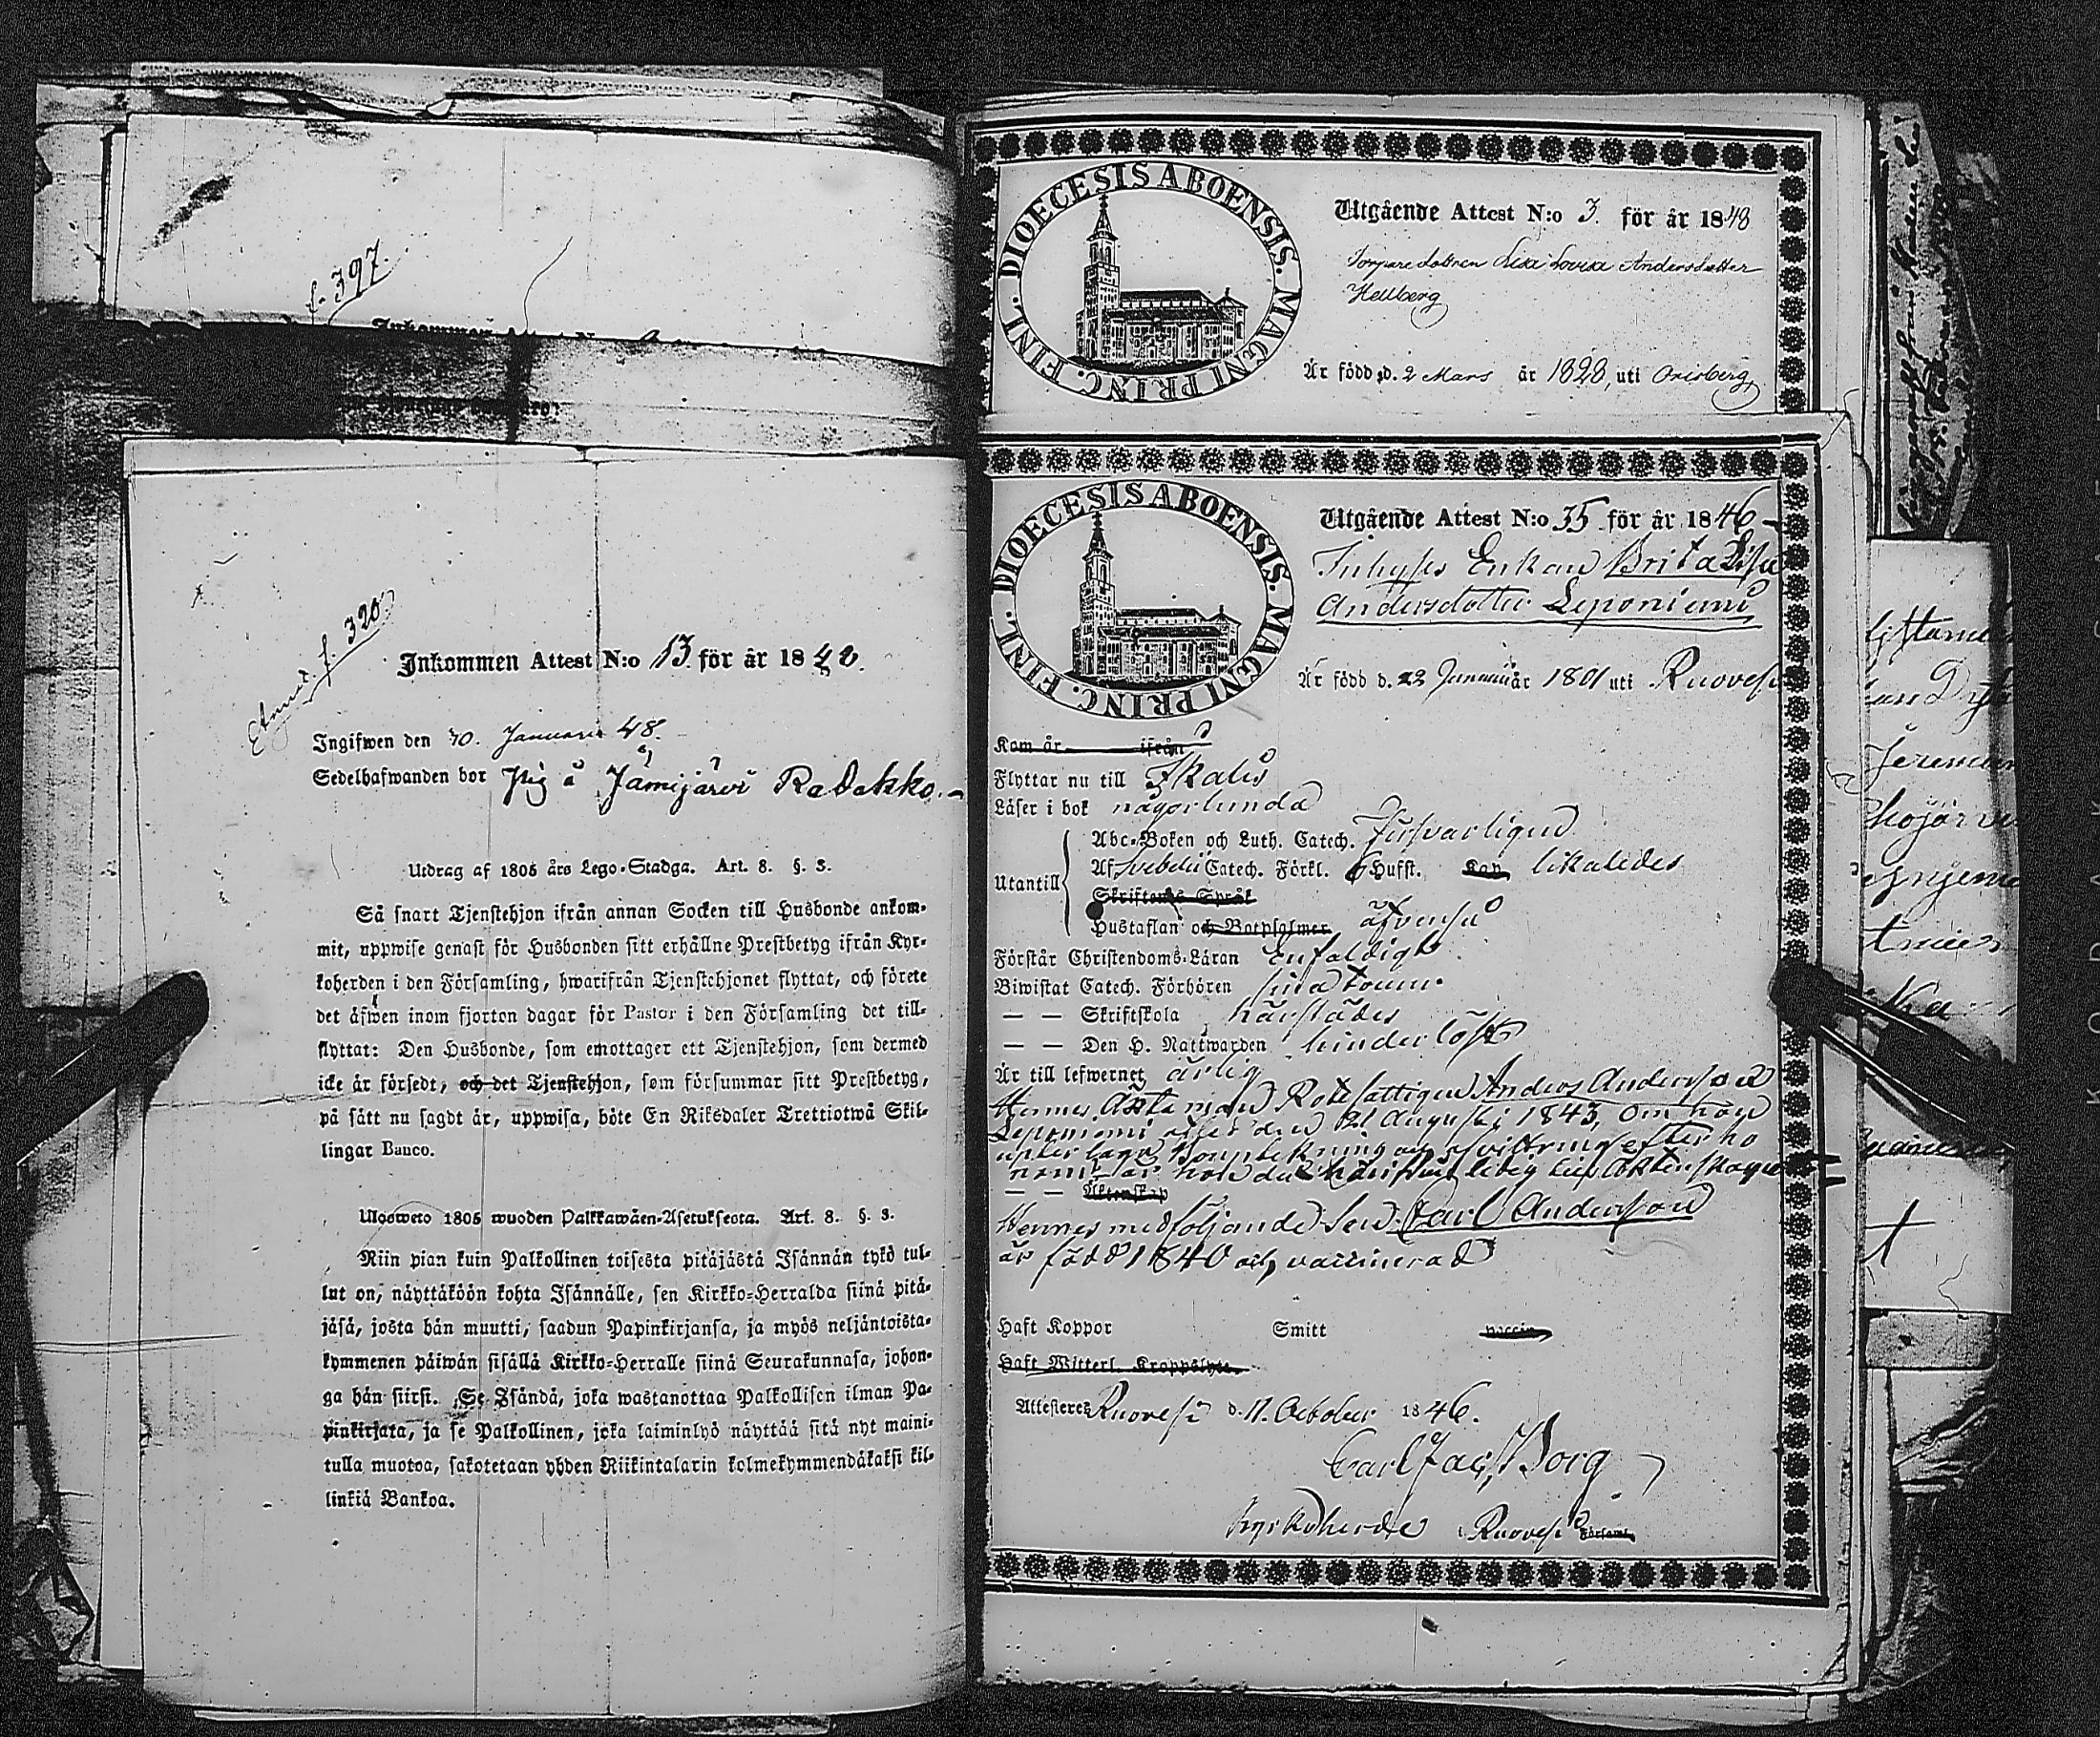 f. 397.
Etnat. f. 320.
Inkommen Attest N:o 13. för år 1848.
Ingifwen den 30. Januari 48.
Sedelhafwanden bor Pig å Jämijärvi
Utdrag af 1805 års Lego-Stadga. Art. 8. §. 3.
Så snart Tjenstehjon ifrån annan Socken till Husbonde ankom-
mit, uppwise genast för Husbonden sitt erhållne Prestbetyg ifrån Kyr-
koherden i den Församling, hwarifrån Tjenstehjonet flyttat, och förete
det äfwen inom fjorton dagar för Pastor i den Församling det till-
flyttat: Den Husbonde, som emottager ett Tjenstehjon, som dermed
icke är försedt, och det Tjenstehjon, som försummar sitt Prestbetyg,
på sätt nu sagdt är, uppwisa, böte En Riksdaler Trettiotwå Skil-
lingar Banco.
Ulosweto 1805 wuoden Palkkawäen-Asetuksesta. Art. 8. §. 3.
Niin pian kuin Palkollinen toisesta pitäjästä Isännän tykö tul-
lut on, näyttäköön kohta Isännälle, sen Kirkko-Herralda siinä pitä-
jäsä, josta hän muutti, saadun Papinkirjansa, ja myös neljäntoista-
kymmenen päiwän sisällä Kirkko-Herralle siinä Seurakunnasa, johon-
ga hän siirsi. Se Isändä, joka wastanottaa Palkollisen ilman Pa-
pinkirjata, ja se Palkollinen, joka laiminlyö näyttää sitä nyt maini-
tulla muotoa, sakotetaan yhden Riikintalarin kolmekymmendäkaksi kil-
linkiä Bankoa.
DIOECESIS ABOENSIS. MAGNI PRINC. FINL.
Utgående Attest N:o 3. för år 1848
Torpare dottren Lisa Lovisa Andersdotter
Hellberg
Är född d. 2 Mars år 1828, uti Orisberg
DIOECESIS ABOENSIS. MAGNI PRINC. FINL.
Utgående Attest N:o 35 för år 1846
Inhyses Enkan Brita Lisa
Andersdotter Leponiemi
Är född d. 22 Januarii år 1801 uti Ruovesi
Kom år ifrån
Flyttar nu till Ikalis
Läser i bok någorlunda
Utantill
Abc-Boken och Luth. Catech. försvarligen
Af Svebelii Catech. Förkl. 6 Hufst. Kap. likaledes
Skriftenes Språk
Hustaflan och Botpsalmer äfvenså
Förstår Christendoms-Läran Enfaldigt
Biwistat Catech. Förhören
— — Skriftskola härstädes
— — Den H. Nattwarden hinderlöst
Är till lefwernet ärlig
Hennes Äkta man Rotefattigen Anders Andersson
Leponiemi den 21 Augusti 1843, Om hon
— — Äktenskap
Hennes medföljande Son Carl Andersson
är född 1840 och vaccinerad
Haft Koppor Smitt vaccin
Haft Witterl. Kroppslyte
Attesteres Ruovesi d. 11. October 1846.
Carl Jac. Borg
Kyrkoherde i Ruovesi Församl.